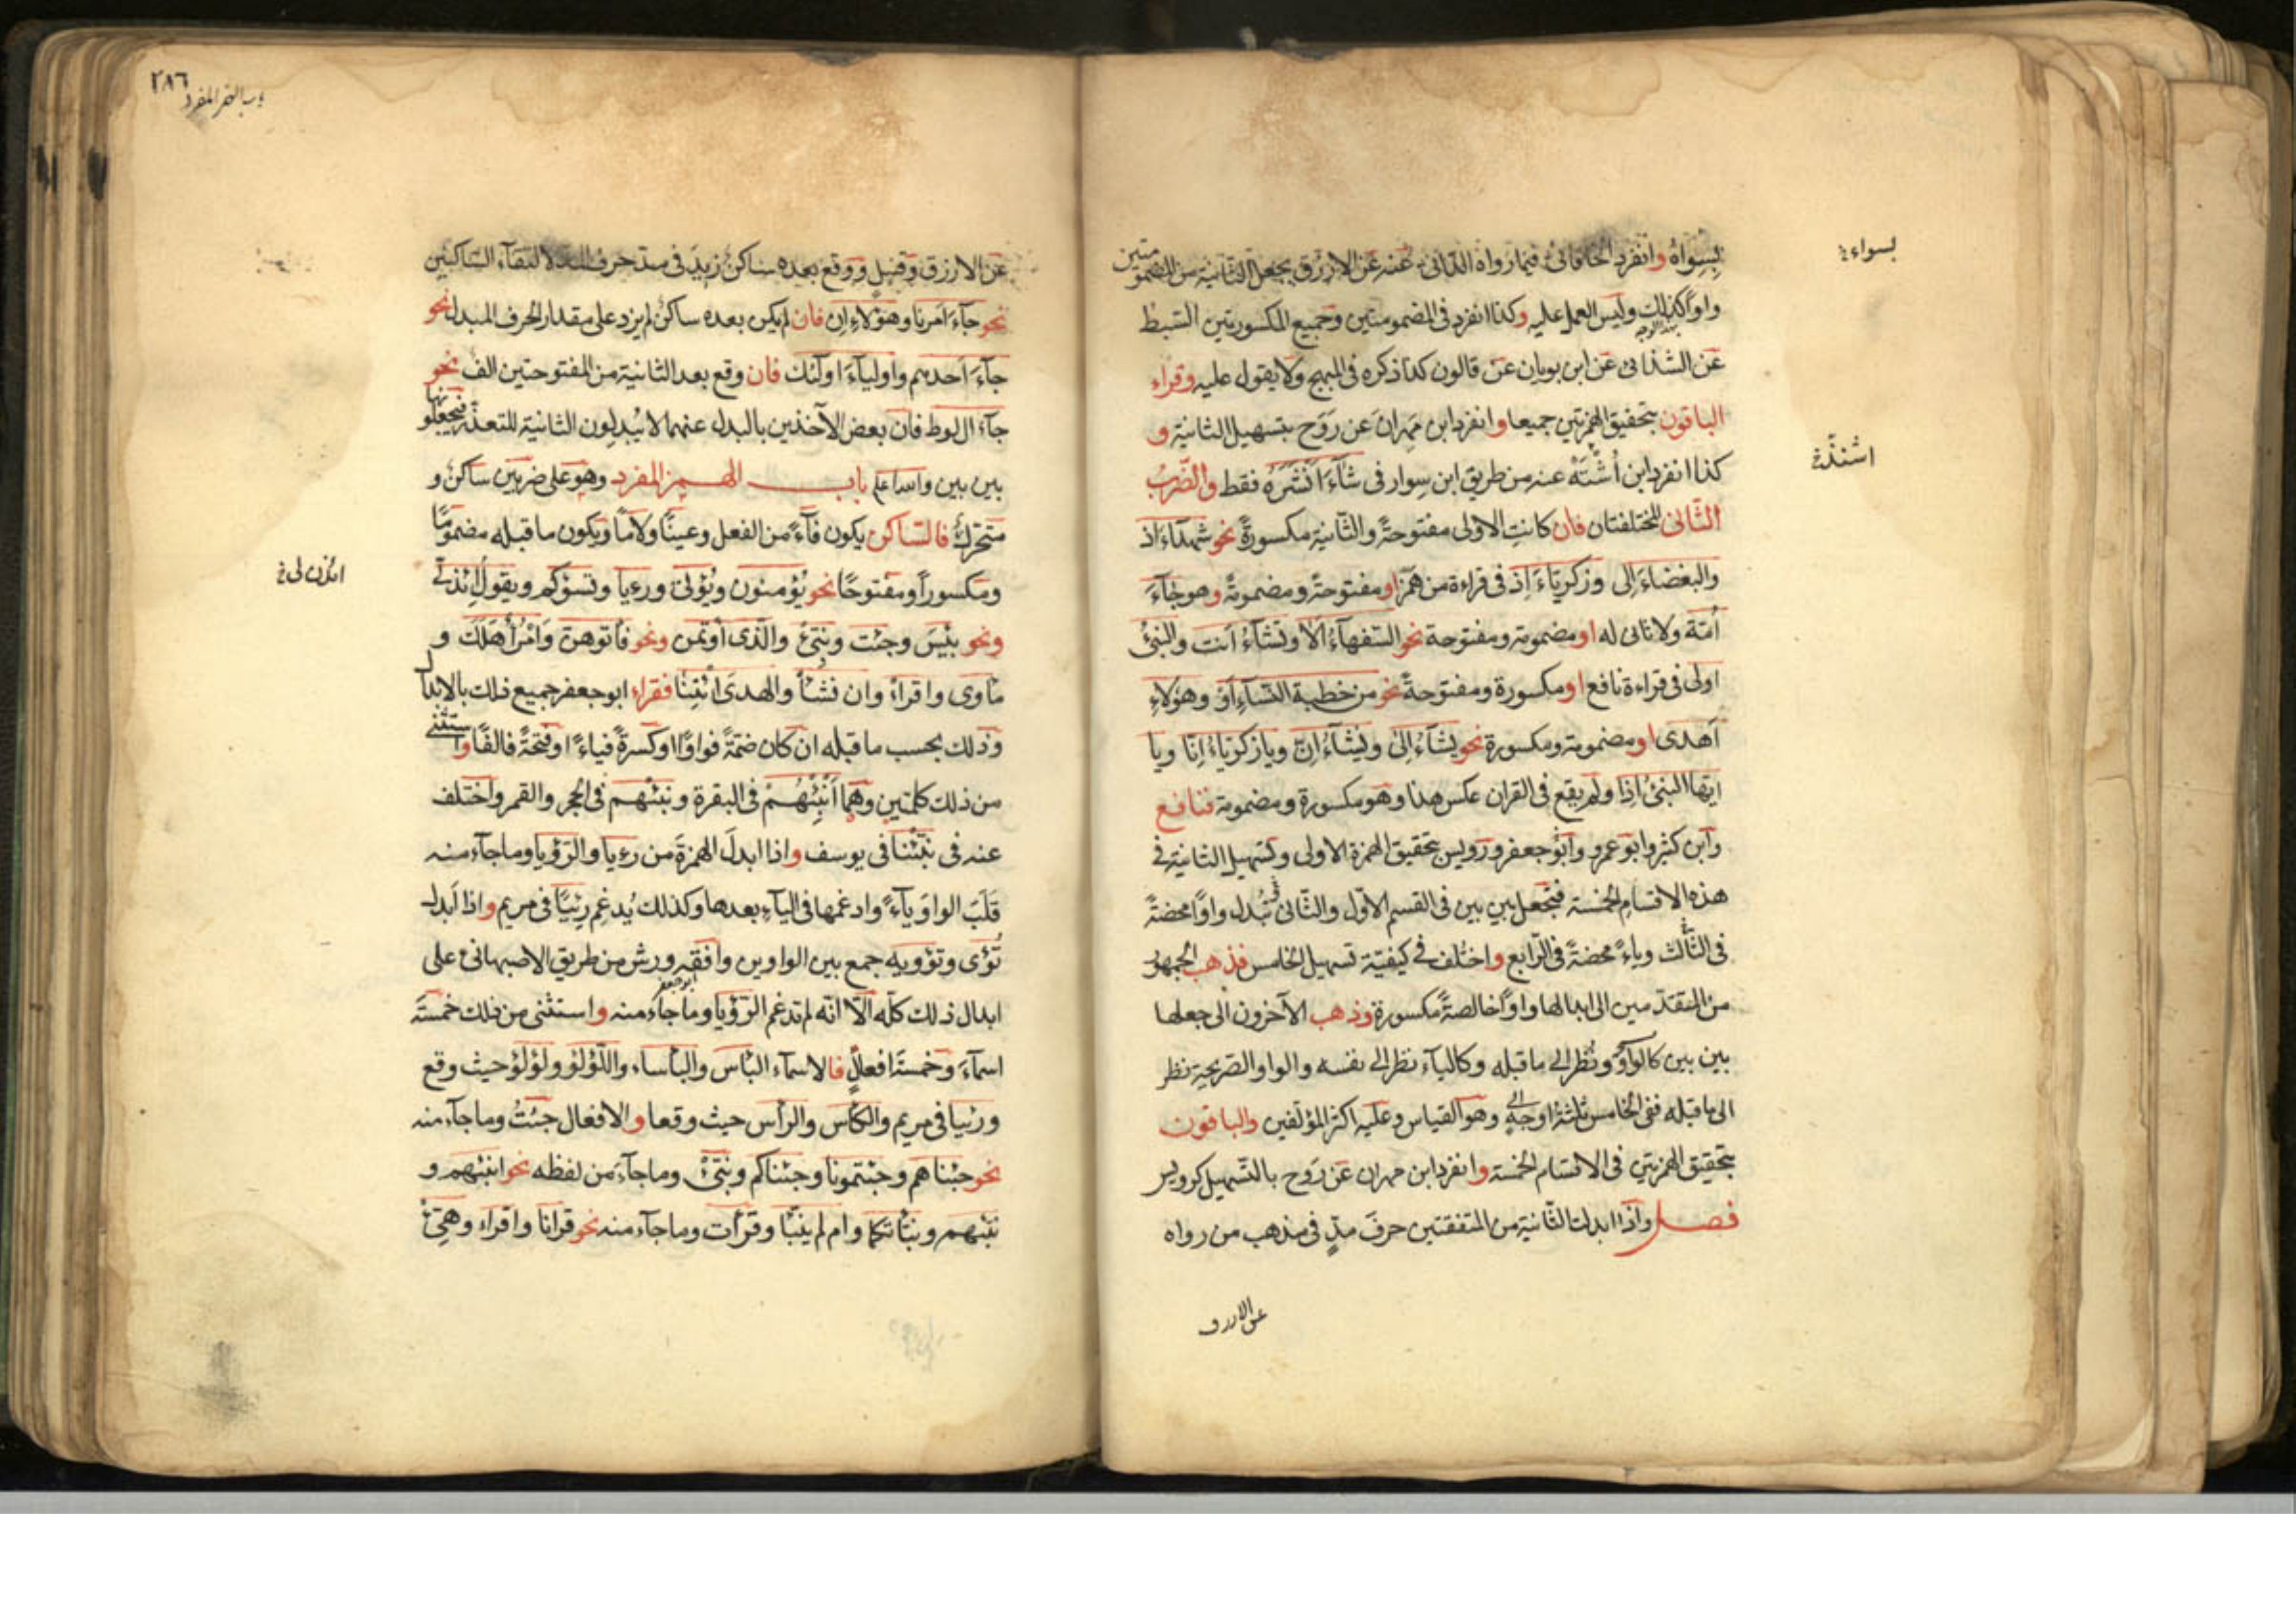 بسواه وانفرد الخاقانى فيما رواه الدانى عنه عن الازرق بجعل الثانية من المضمومتين
بسواء
واوا كذلك وليس العمل عليه وكذا انفرد فى المضمومتين وجميع المكسورتين السبط
بهذا الوجه
عن الشذائى عن ابن بويان عن قالون كذا ذكره فى المبهج ولا يقول عليه وقراء
الباقون بتحقيق الهمزتين جميعا وانفرد ابن مهران عن روح بتسهيل الثانية و
كذا انفرد ابن أشتة عنه من طريق ابن سوار فى شآء أنشره فقط والضرب
الثانى المختلفتان فان كانت الاولى مفتوحة والثانية مكسورة نحو شهدآء اذ
والبغضاء الى وزكرياء اذ فى قراءة من همز او مفتوحة ومضمومة وهو جآء
أمة ولا ثانى له او مضمومة ومفتوحة نحو السفهآء ألا ونشآء أنت والنبئ
اولى فى قراءة نافع او مكسورة ومفتوحة نحو من خطبة النسآء أو وهؤلاء
أهدى او مضمومة ومكسورة نحو يشآء الى ويشآء ان ويا زكرياء انا ويا
ايها النبئ اذا ولم يقع فى القران عكس هذا وهو مكسورة ومضمومة فنافع
وابن كثير وابو عمرو وابو جعفر ورويس بتحقيق الهمزة الاولى وتسهيل الثانية فى
هذه الاقسام الخمسة فتجعل بين بين فى القسم الاول والثانى وتبدل واوا محضة
فى الثالث وياء محضة فى الرابع واختلف فى كيفية تسهيل الخامس فذهب الجمهور
من المتقدمين الى ابدالها واوا خالصة مكسورة وذهب الآخرون الى جعلها
بين بين كالواو ونظر الى ما قبله وكالياء نظر الى نفسه والواو الصريحة نظر
الى ما قبله ففى الخامس ثلثة اوجه وهو القياس وعليه اكثر المؤلفين والباقون
بتحقيق الهمزتين فى الاقسام الخمسة وانفرد ابن مهران عن روح بالتسهيل كرويس
فصل واذا ابدلت الثانية من المتفقتين حرف مد فى مذهب من رواه
عن الازرق
٢٨٦
باب الهمز المفرد
عن الازرق وقنبل ووقع بعده ساكن زيد فى مد حرف المد لالتقآء الساكنين
نحو جآء أمرنا وهؤلاء ان فان لم يكن بعده ساكن لم يزد على مقدار الحرف المبدل نحو
جآء أحدهم واوليآء اولئك فان وقع بعد الثانية من المفتوحتين الف نحو
جآء ال لوط فان بعض الآخذين بالبدل عنهما لا يبدلون الثانية للتعذر فيجعلونها
بين بين والله اعلم باب الهمز المفرد وهو على ضربين ساكن و
متحرك فالساكن يكون فآء من الفعل وعينا ولاما ويكون ما قبله مضموما
ومكسورا ومفتوحا نحو يؤمنون ويؤتى ورءيا وتسؤكم ويقول ائذن لى
ائذن لى
ونحو بئس وجئت ونبئ والذى أؤتمن ونحو فأتوهن وأمر أهلك و
مأوى واقرأ وان نشأ والهدى ائتنا فقراء ابو جعفر جميع ذلك بالابدال
وذلك بحسب ما قبله ان كان ضمة فواوا او كسرة فياء او فتحة فالفا واستثنى
من ذلك كلمتين وهما أنبئهم فى البقرة ونبئهم فى الحجر والقمر واختلف
عنه فى نبئنا فى يوسف واذا ابدل الهمزة من رءيا والرؤيا وما جآء منه
قلب الواو يآء وادغمها فى اليآء بعدها وكذلك يدغم رئيا فى مريم واذا أبدل
تؤى وتؤويه جمع بين الواوين وافقه ورش من طريق الاصبهانى على
ابدال ذلك كله الا انه لم تدغم الرؤيا وما جآء منه واستثنى من ذلك خمسة
ابو جعفر
اسمآء وخمسة افعال فالاسمآء البأس والبأساء واللؤلؤ ولؤلؤ حيث وقع
ورئيا فى مريم والكأس والرأس حيث وقعا والافعال جئت وما جآء منه
نحو جئناهم وجئتمونا وجئناكم ونبئ وما جآء من لفظه نحو انبئهم و
نبئهم ونبأتكما وام لم ينبأ وقرأت وما جآء منه نحو قرانا واقراء وهيئ